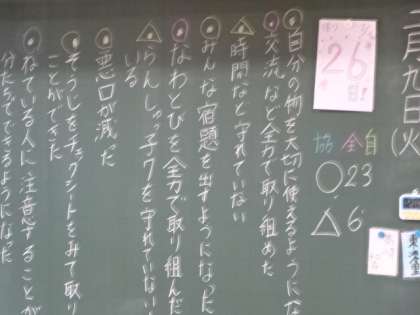 二月九日(火
26
自
全
協
○23
△6
◎自分の物を大切に使えるようにな
◎交流など全力で取り組めた
△時間など守れていない
◎みんな宿題を出すようになった
◎なわとびを全力で取り組んだ
△らんしゅっ子ワを守れていない
いる
◎悪口が減った
◎そうじをチェックシートをみて取り
ことができた
◎ねている人に注意することが
分たちでできるようになった